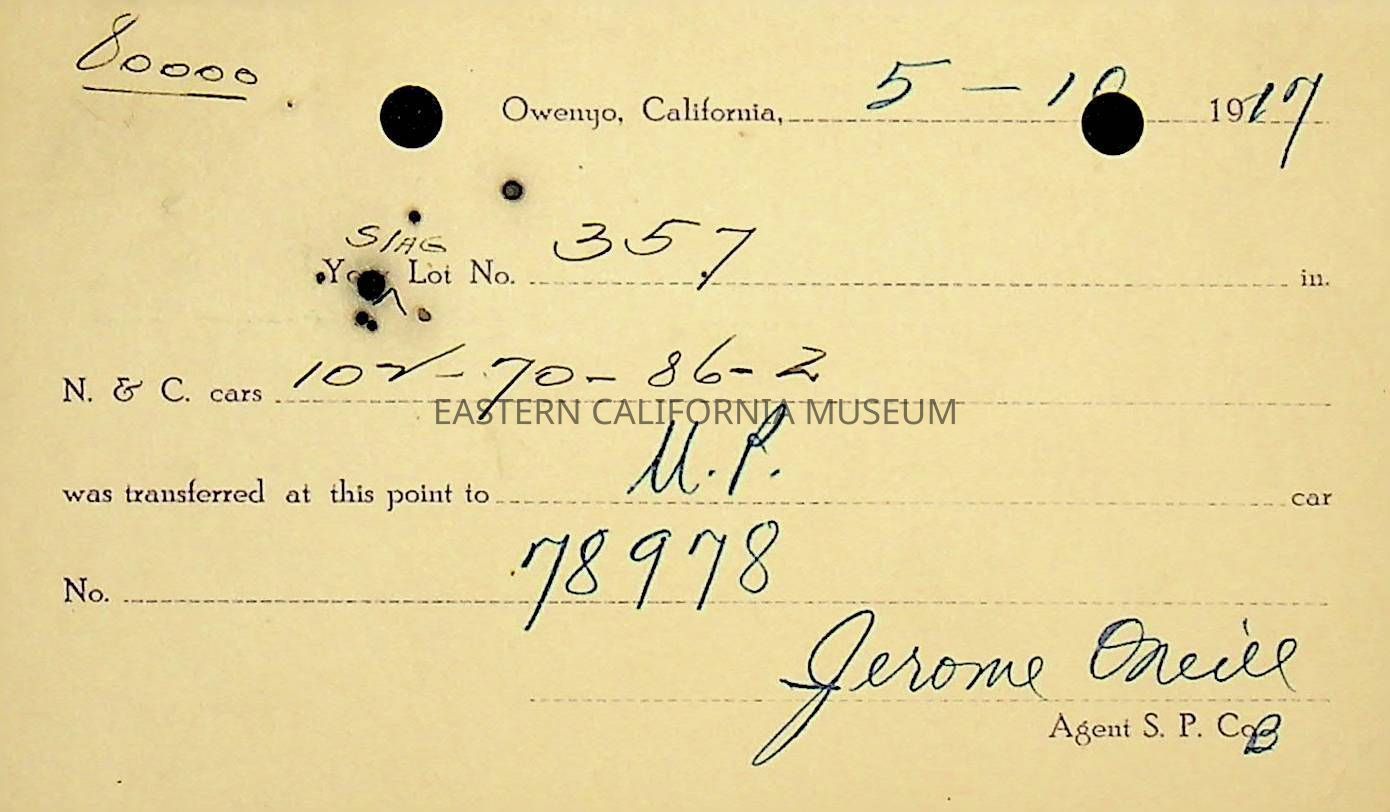 80000
Owenyo, California, 5 - 10 1917
Slag
Your Lot No. 357 in.
N. & C. cars 102 - 70 - 86 - 2
EASTERN CALIFORNIA MUSEUM
was transferred at this point to U.P. car
No. 78978
Jerome Oneill
Agent S. P. Co. B